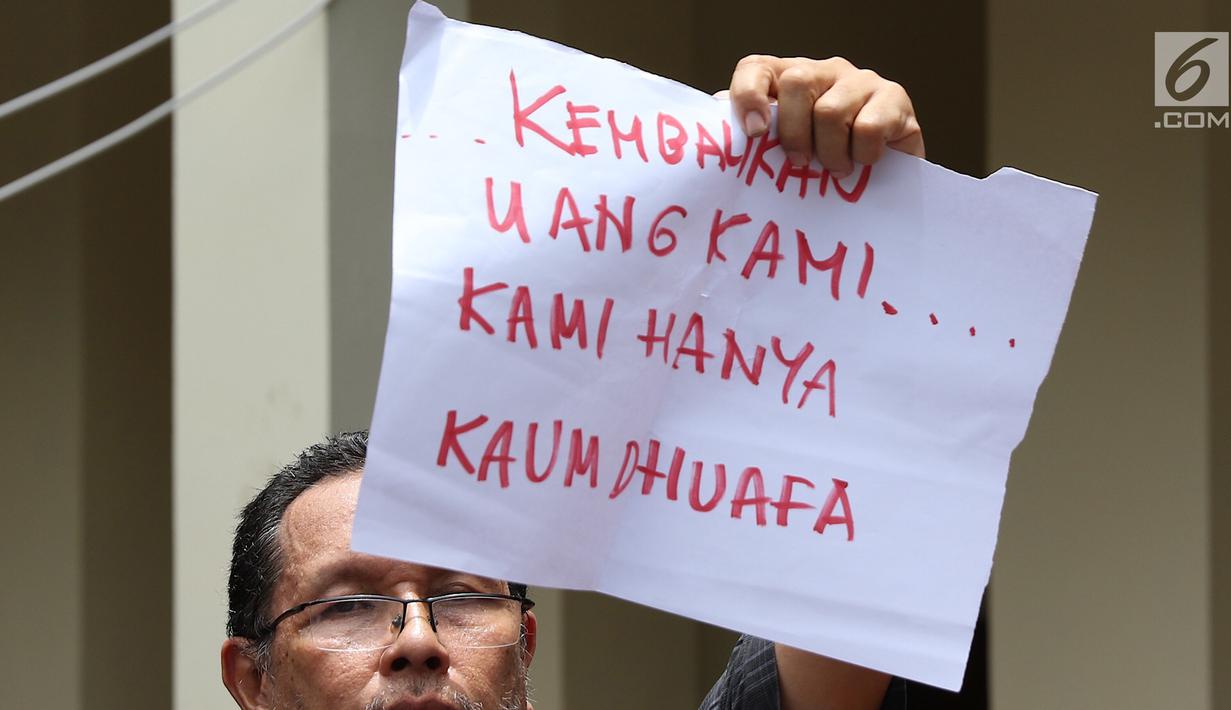 .... KEMBALIKAN
UANG KAMI.....
KAMI HANYA
KAUM DHUAFA
6
.COM